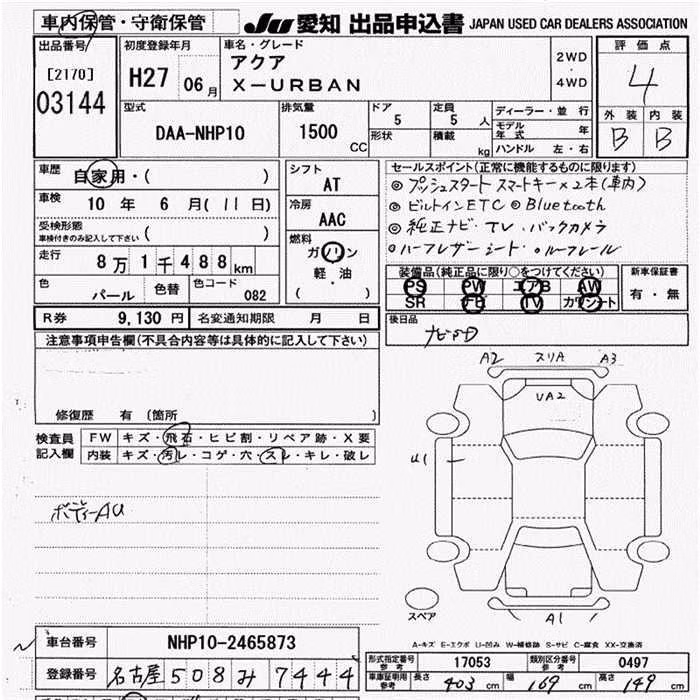 車内保管・守衛保管 JU 愛知 出品申込書 JAPAN USED CAR DEALERS ASSOCIATION
出品番号 初度登録年月 車名・グレード 評価点
[2170] H27 06月 アクア 2WD 4
03144 X-URBAN 4WD
型式 排気量 ドア 定員 ディーラー・並行 外装 内装
DAA-NHP10 1500 CC 5 5人 モデル年式 年 B B
形状 積載 kg ハンドル 左・右
車歴 自家用・( ) シフト セールスポイント(正常に機能するものに限ります)
AT ◎プッシュスタート スマートキー×2本(車内)
車検 10年 6月(11日) 冷房 ◎ビルトインETC ◎Bluetooth
受検形態 ( ) AAC ◎純正ナビ・TV・バックカメラ
車検付きのみ記入して下さい 燃料 ◦ハーフレザーシート・◦ルーフレール
走行 8万1千488km ガソリン 装備品(純正品に限り○をつけてください) 新車保証書
軽・油 PS PW エアB AW 有・無
色 パール 色替 色コード 082 ( ) SR TV カワシート
R券 9,130円 名変通知期限 月 日 後日品
注意事項申告欄(不具合内容等は具体的に記入して下さい)
A2 スリA A3
UA2
修復歴 有 (箇所 )
検査員 FW キズ・飛石・ヒビ割・リペア跡・X要
記入欄 内装 キズ・汚レ・コゲ・穴・スレ・キレ・破レ
U1
ボディーAU
スペア A1
A-キズ E-エクボ U-凹み W-補修跡 S-サビ C-腐食 XX-交換済
車台番号 NHP10-2465873
形式指定番号 参考 17053 類別区分番号 参考 0497
登録番号 名古屋508み7444
車庫証明用 参考 長さ 403cm 幅 169cm 高さ 149cm